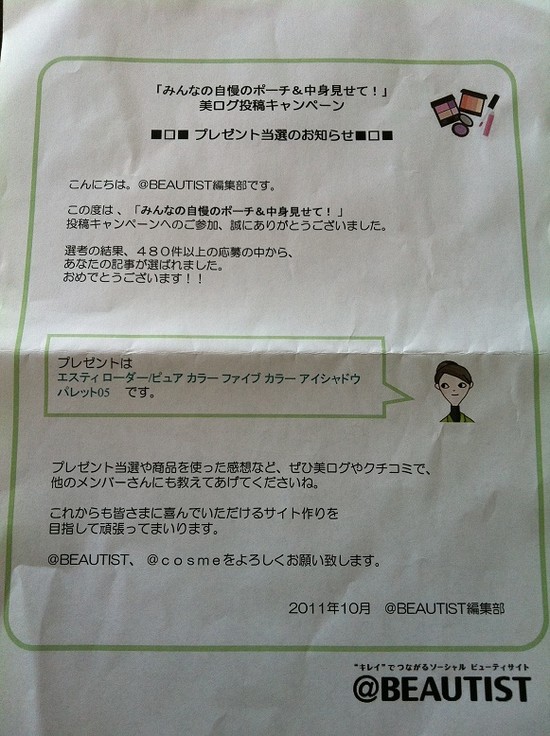 「みんなの自慢のポーチ＆中身見せて！」
美ログ投稿キャンペーン
■□■ プレゼント当選のお知らせ■□■
こんにちは。@BEAUTIST編集部です。
この度は、「みんなの自慢のポーチ＆中身見せて！」
投稿キャンペーンへのご参加、誠にありがとうございました。
選考の結果、４８０件以上の応募の中から、
あなたの記事が選ばれました。
おめでとうございます！！
プレゼントは
エスティ ローダー/ピュア カラー ファイブ カラー アイシャドウ
パレット05　です。
プレゼント当選や商品を使った感想など、ぜひ美ログやクチコミで、
他のメンバーさんにも教えてあげてくださいね。
これからも皆さまに喜んでいただけるサイト作りを
目指して頑張ってまいります。
@BEAUTIST、＠ｃｏｓｍｅをよろしくお願い致します。
2011年10月　@BEAUTIST編集部
“キレイ”でつながるソーシャル ビューティサイト
@BEAUTIST